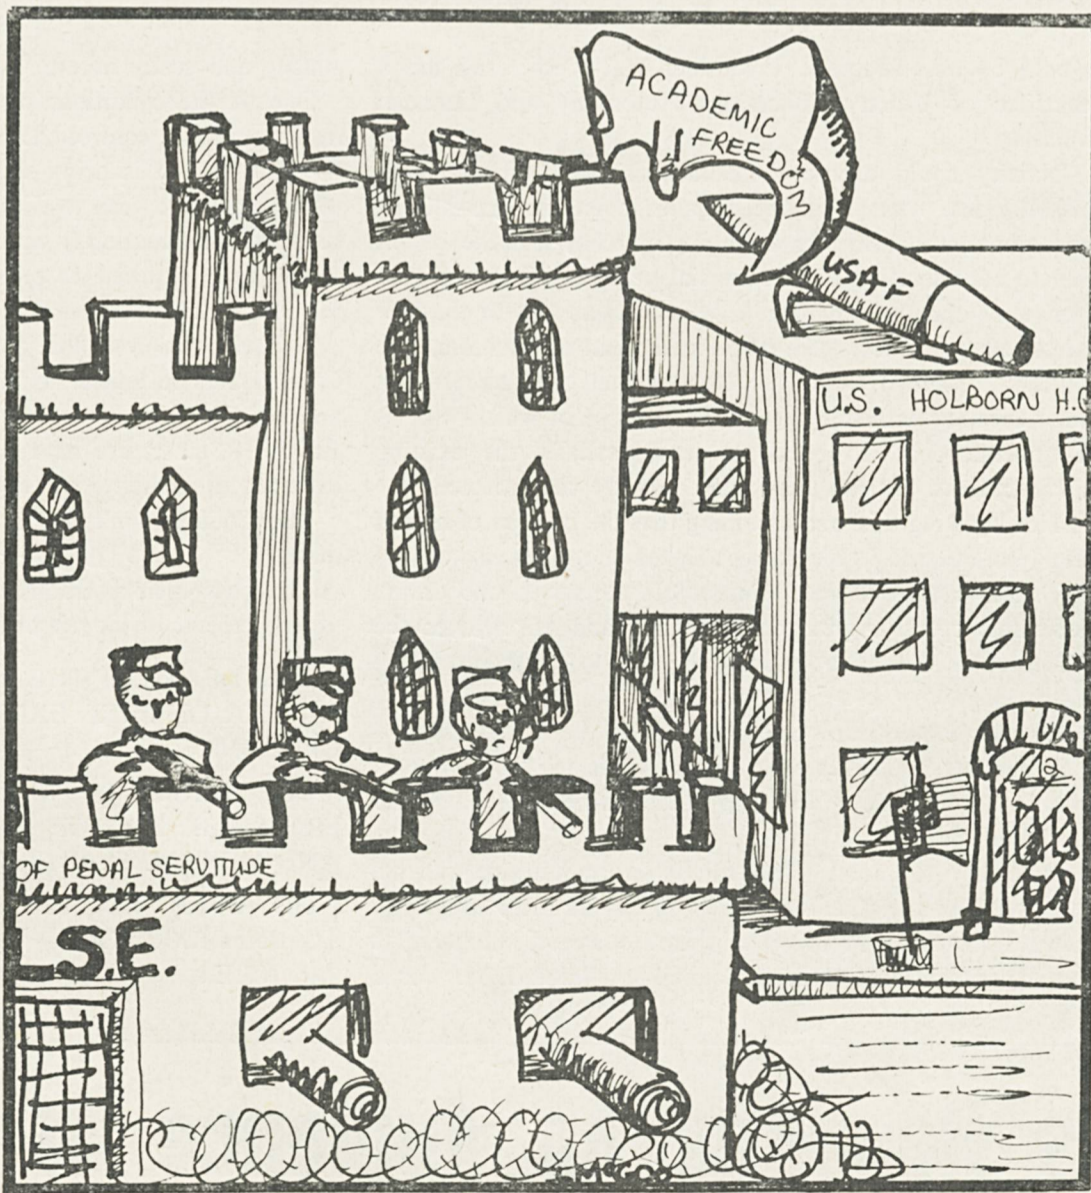 ACADEMIC
FREEDOM
USAF
U.S. HOLBORN H.Q
OF PENAL SERVITUDE
L.S.E.